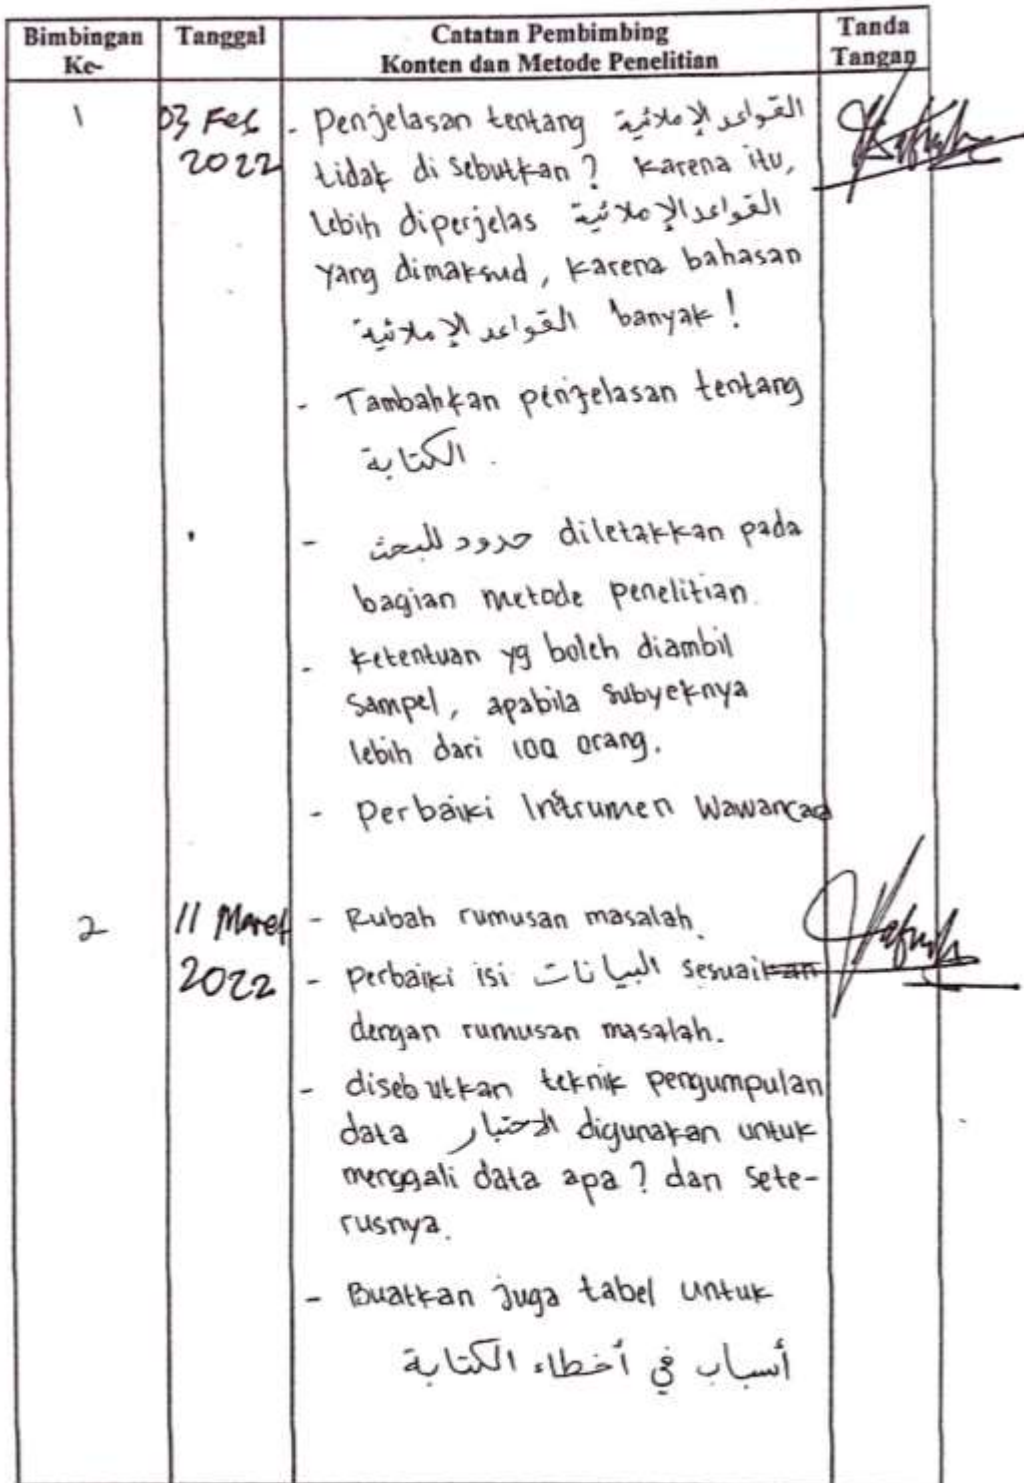 Bimbingan Ke-
Tanggal
Catatan Pembimbing
Konten dan Metode Penelitian
Tanda Tangan
1
03 Feb 2022
- Penjelasan tentang القواعد الإملائية
tidak di sebutkan? Karena itu,
lebih diperjelas القواعد الإملائية
yang dimaksud, karena bahasan
القواعد الإملائية banyak!
- Tambahkan penjelasan tentang
الكتابة.
- حدود للبحث diletakkan pada
bagian metode penelitian.
- Ketentuan yg boleh diambil
sampel, apabila subyeknya
lebih dari 100 orang.
- Perbaiki Intrumen Wawancaa
2
11 Maret 2022
- Rubah rumusan masalah.
- Perbaiki isi البيانات sesuaikan
dengan rumusan masalah.
- disebutkan teknik pengumpulan
data الاختبار digunakan untuk
menggali data apa? dan sete-
rusnya.
- Buatkan juga tabel untuk
أسباب في أخطاء الكتابة